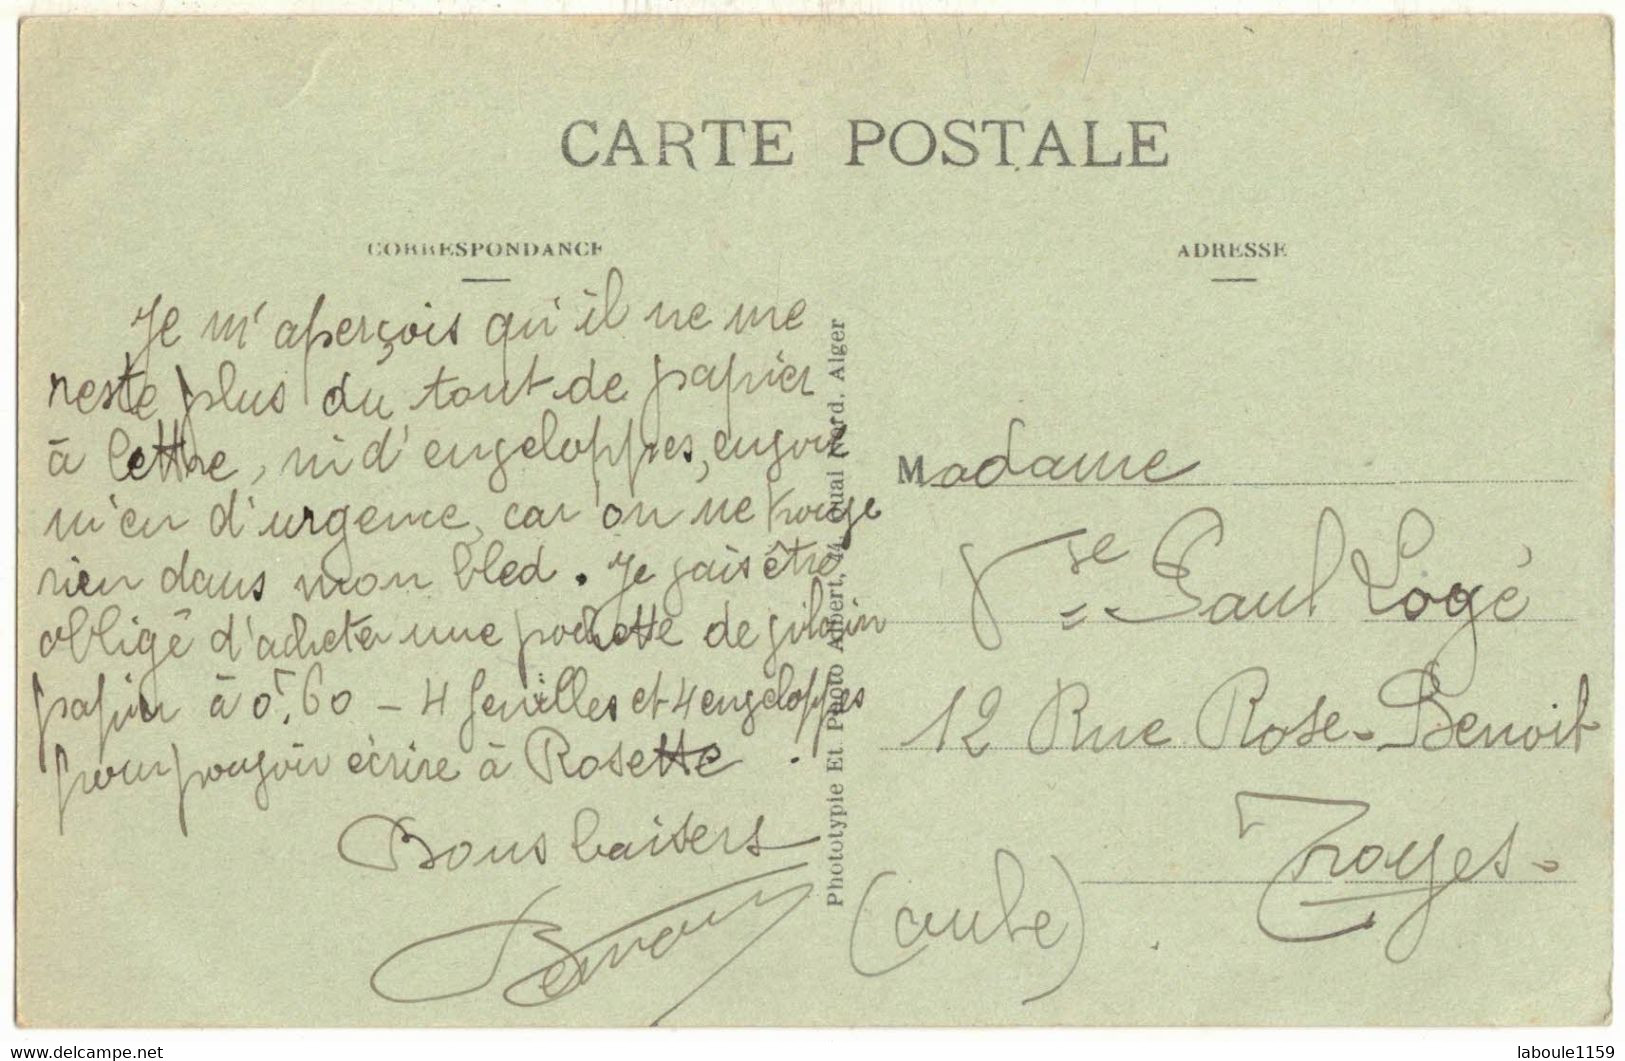 CARTE POSTALE
CORRESPONDANCE
ADRESSE
Je m'aperçois qu'il ne me
reste plus du tout de papier
à lettre, ni d'enveloppes, envoie
m'en d'urgence, car on ne trouve
rien dans mon bled. Je vais être
obligé d'acheter une pochette de vilain
papier à 0f,60 - 4 feuilles et 4 enveloppes
pour pouvoir écrire à Rosette.
Bons baisers
Phototypie Et Photo Albert, 44, Quai Nord. Alger
Madame
Vse Paul Logé
12 Rue Rose-Benoit
Troyes-
(aube).
laboule1159.delcampe.net